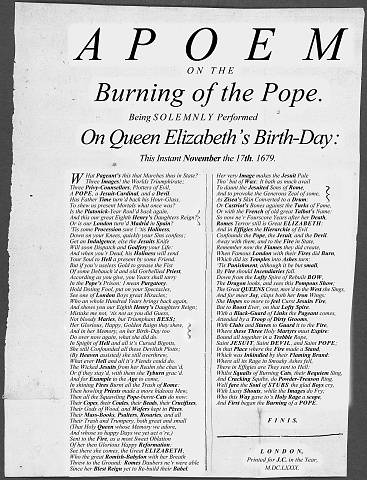 A POEM
ON THE
Burning of the Pope.
Being SOLEMNLY Performed
On Queen Elizabeth's Birth-Day:
This Instant November the 17th. 1679.
What Pageant's this that Marches thus in State?
Three Images! the Worlds Triumphirate;
Three Privy-Counsellors, Plotters of Evil,
A POPE, a Jesuit-Cardinal, and a Devil.
Has Father Time turn'd back his Hour-Glass,
To shew us present Mortals what once was?
Is the Platonick-Year Roul'd back again,
And this our great Eighth Henry's Daughters Reign?
Or is our London turn'd Madrid in Spain?
'Tis some Procession sure! 'tis Holiness,
Down on your Knees, quickly your Sins confess;
Get an Indulgence, else the Jesuits Knife
Will soon Dispatch and Godfrey your Life:
And when you'r Dead, his Holiness will send
Your Soul to Hell a present by some Friend.
But if you'r useless Gold to greaze the Fist
Of some Debauch'd and old Gorbellied Priest,
According as you give, you Years shall tarry
In the Pope's Prison; I mean Purgatory.
Hold Doting Fool, put on your Spectacles,
See one of London Boys great Miracles;
Who on whole Hundred Years brings back again,
And shows you our Eighth Henry's Daughters Reign;
Mistake me not, 'tis not as you did Guess,
Not bloody Maries, but Triumphant BESS;
Her Glorious, Happy, Golden Raign they shew,
And in her Memory, on her Birth-Day too
Do over now again, what she did do
In Spight of Hell and all it's Cursed Bipeds,
She still Confounded all their Plots and Snares;
(By Heaven assisted) she still overthrew,
What ever Hell and all it's Fiends could do.
The Wicked Jesuits from her Realm she chas'd;
Or if they stay'd, with them the Tyburn grac'd
And for Example to the Age to come,
In shining Fires Burnt all the Trash of Rome:
Then howling Priests made a more hideous Mew,
Then all the Squawling Pope-born-Cats do now:
Their Copes, their Coules, their Beads, their Crucifixes,
Their Gods of Wood, and Wafers kept in Pixes.
Their Mass-Books, Psalters, Rosaries, and all
Their Trash and Trumpery, both great and small
(That Holy Queen whose Memory we adore,
And whose so happy Days we yet act o're,)
Sent to the Fire, as a most Sweet Oblation
Of her then Glorious Happy Reformation:
See there she comes, the Great ELIZABETH,
Who the great Romish-Babylon with her Breath
Threw to the Ground: Romes Daubers ne're were able
Since her Blest Reign yet to Re-build their Babel.
Her very Image makes the Jesuit Pale
Tho' but of Wax; It hath as much avail
To daunt the Jesuited Sons of Rome,
And to provoke the Generous Zeal of some,
As Zisca's Skin Converted to a Drum;
Or Castriot's Bones against the Turks of Fame,
Or with the French of old great Talbot's Name:
So now ne're Foursome Years after her Death,
Romes Terror still is Great ELIZABETH:
And in Effigies the Hierarchie of Evil
Confounds the Pope, the Jesuit, and the Devil.
Away with them, and to the Fire in State,
Remember now the Flames they did create,
When Famous London with their Fires did Burn,
Which did its Temples into Ashes turn:
'Tis Punishment, although it be but small,
By Fire should Incendiaries fall.
Down from the Lofty Spire of Rebuilt BOW
The Dragon looks, and sees this Pompous Show,
The Great QUEENS Crest, mov'd to the West she Stags,
And for meer Joy, claps both her Iron Wings:
She Hopes no more to feel Curst Jesuits Fire,
But to Roost Ever, on that Lofty Spire.
With a Black-Guard of Links the Pageant comes,
Attended by a Troop of Dirty Grooms,
With Clubs and Staves to Guard it to the Fire,
Where these Three Holy Martyrs must Expire:
Bound all together in a Trebble Rope,
Saint JESUIT, Saint DEVIL, and Saint POPE:
In that Place where the Fire made a Stand,
Which was Inkindled by their Flaming Brand:
Where all its Rage in Smoaky Ashes fell,
There in Effigies are They sent to Hell:
Whilst Squals of Burning Cats, their Requiem Sing,
And Cracking Squibs, do Powder-Treason Ring,
Wast fare the Soul of STUBS the glad Boys cry,
With Lusty Shouts, while the Images do Fry.
Who this Way gave to's Holy Rage a scope,
And First began the Burning of a POPE.
FINIS.
LONDON,
Printed for J.C. in the Year,
M.DC.LXXIX.